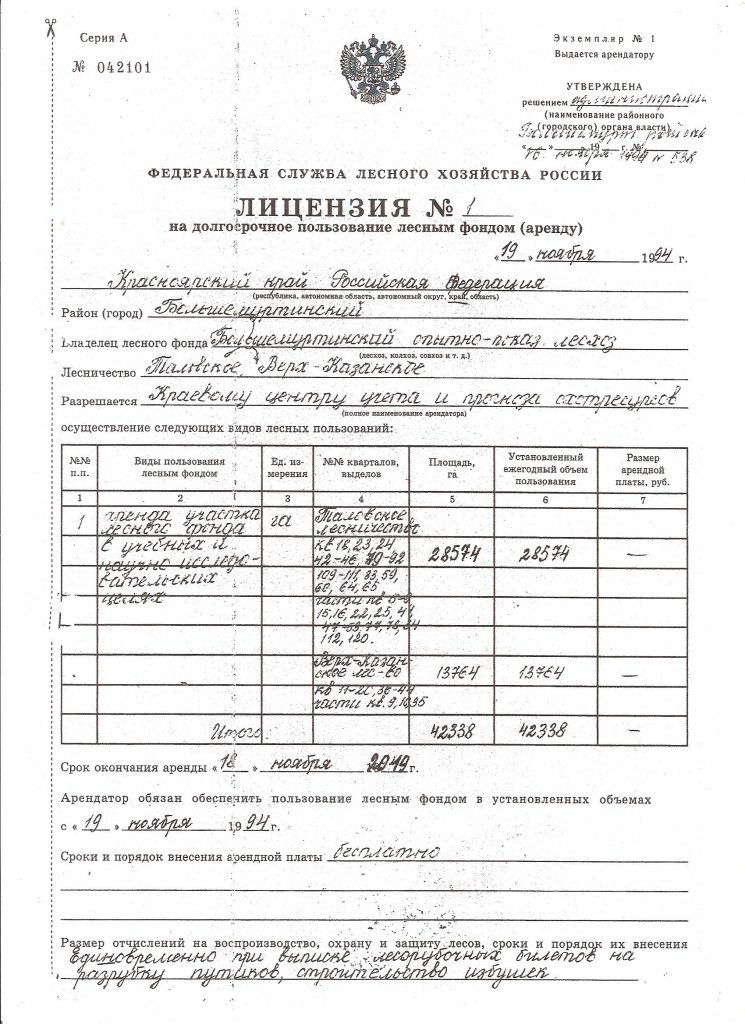 Серия А
№ 042101
Экземпляр № 1
Выдается арендатору
УТВЕРЖДЕНА
решением администрации
(наименование районного
(городского) органа власти)
Большемурт. района
« 16. » ноября 1994 № 538
ФЕДЕРАЛЬНАЯ СЛУЖБА ЛЕСНОГО ХОЗЯЙСТВА РОССИИ
ЛИЦЕНЗИЯ № 1
на долгосрочное пользование лесным фондом (аренду)
« 19 » ноября 1994 г.
Красноярский край Российская Федерация
(республика, автономная область, автономный округ, край, область)
Район (город) Большемуртинский
Владелец лесного фонда Большемуртинский опытно-показ. лесхоз
(лесхоз, колхоз, совхоз и т. д.)
Лесничество Таловское, Верх-Казанское
Разрешается Краевому центру учета и прогноза охотресурсов
(полное наименование арендатора)
осуществление следующих видов лесных пользований:
№№ п.п. Виды пользования лесным фондом Ед. измерения №№ кварталов, выделов Площадь, га Установленный ежегодный объем пользования Размер арендной платы, руб.
1 2 3 4 5 6 7
1 аренда участка га Таловское
лесного фонда лесничество
в учебных и кв 18, 23, 24 28574 28574 —
научно исследо- 42-46, 79-92
вательских 109-111, 33, 59,
целях 60, 64, 65
части кв 5-8,
15, 16, 22, 25, 41,
47-53, 77, 78, 84
112, 120.
Верх-Казан-
ское лес-во 13764 13764 —
кв 11-21, 36-44
части кв. 9, 10, 35
Итого: 42338 42338 —
Срок окончания аренды « 18 » ноября 2019 г.
Арендатор обязан обеспечить пользование лесным фондом в установленных объемах
с « 19 » ноября 1994 г.
Сроки и порядок внесения арендной платы бесплатно
Размер отчислений на воспроизводство, охрану и защиту лесов, сроки и порядок их внесения
Единовременно при выписке лесорубочных билетов на
разрубку путиков, строительство избушек